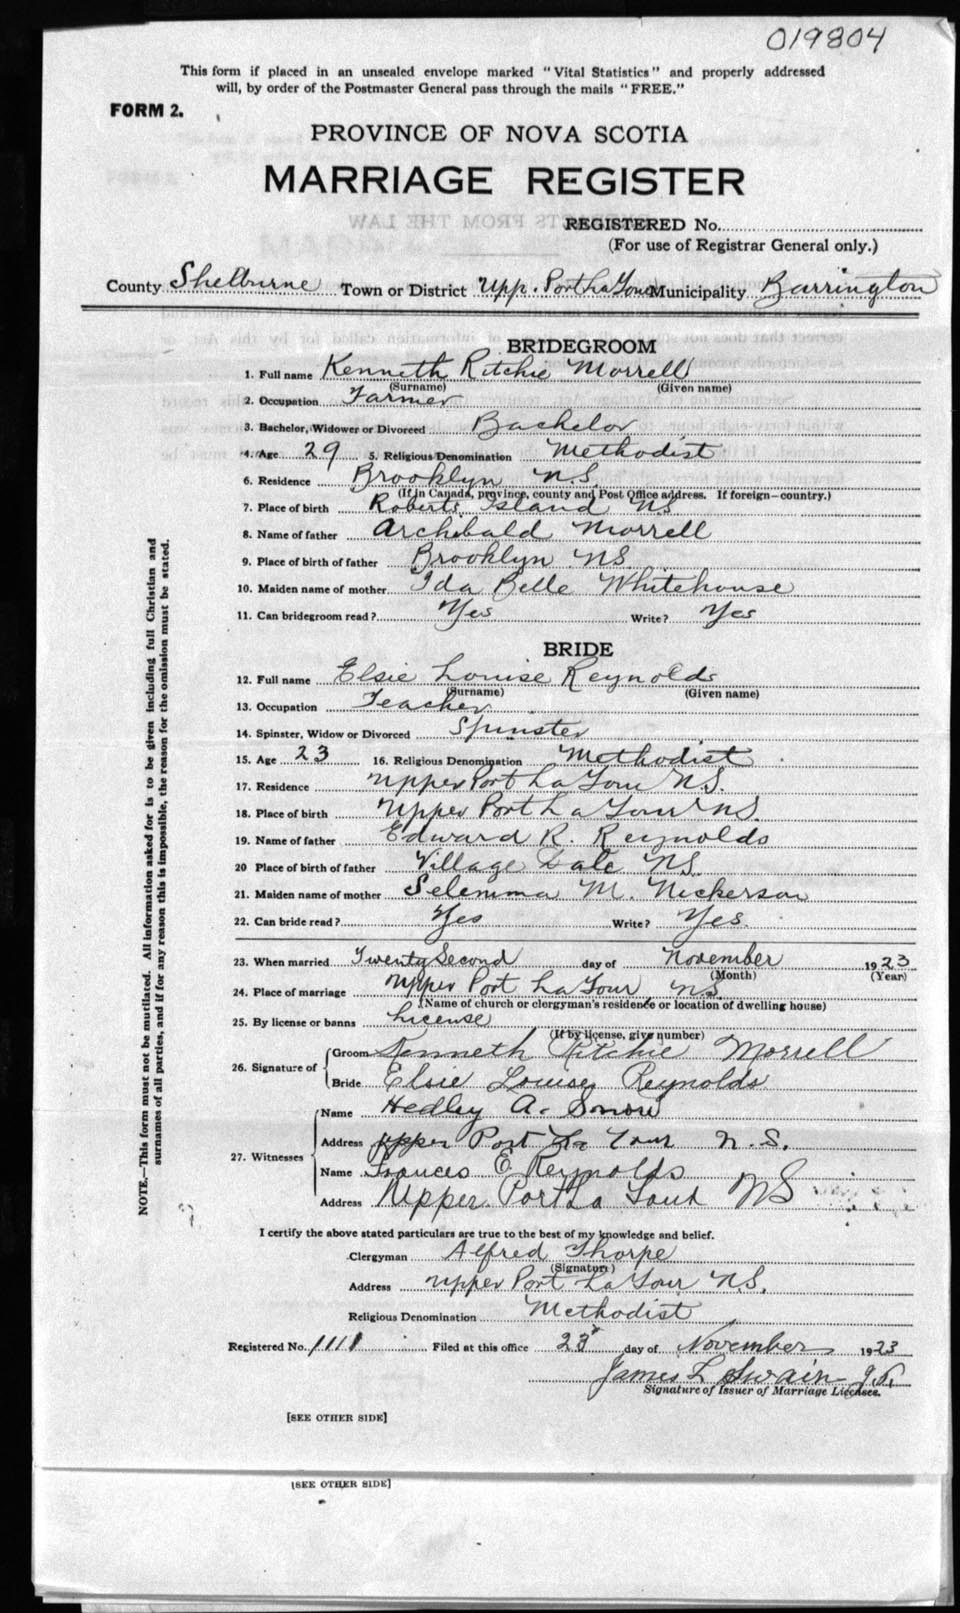 019804
This form if placed in an unsealed envelope marked "Vital Statistics" and properly addressed
will, by order of the Postmaster General pass through the mails "FREE."
FORM 2.
PROVINCE OF NOVA SCOTIA
MARRIAGE REGISTER
REGISTERED No.
(For use of Registrar General only.)
County Shelburne Town or District Upp. Port La Tour Municipality Barrington
BRIDEGROOM
1. Full name Kenneth Ritchie Morrell
(Surname) (Given name)
2. Occupation Farmer
3. Bachelor, Widower or Divorced Bachelor
4. Age 29 5. Religious Denomination Methodist
6. Residence Brooklyn N.S.
(If in Canada, province, county and Post Office address. If foreign—country.)
7. Place of birth Roberts Island NS
8. Name of father Archibald Morrell
9. Place of birth of father Brooklyn NS
10. Maiden name of mother Ida Belle Whitehouse
11. Can bridegroom read? Yes Write? Yes
BRIDE
12. Full name Elsie Louise Reynolds
(Surname) (Given name)
13. Occupation Teacher
14. Spinster, Widow or Divorced Spinster
15. Age 23 16. Religious Denomination Methodist
17. Residence Upper Port La Tour N.S.
18. Place of birth Upper Port La Tour NS.
19. Name of father Edward R. Reynolds
20 Place of birth of father Village Dale NS.
21. Maiden name of mother Selemma M. Nickerson
22. Can bride read? Yes Write? Yes.
23. When married Twenty Second day of November 1923
(Month) (Year)
24. Place of marriage Upper Port La Tour NS.
(Name of church or clergyman's residence or location of dwelling house)
25. By license or banns License
(If by license, give number)
26. Signature of Groom Kenneth Ritchie Morrell
Bride Elsie Louise Reynolds
27. Witnesses Name Hedley A. Snow
Address Upper Port La Tour N.S.
Name Frances E. Reynolds
Address Upper Port La Tour NS
I certify the above stated particulars are true to the best of my knowledge and belief.
Clergyman Alfred Thorpe
(Signature)
Address Upper Port La Tour N.S.
Religious Denomination Methodist
Registered No. 1111 Filed at this office 23 day of November 1923
James L Swain J.P.
Signature of Issuer of Marriage Licenses.
[SEE OTHER SIDE]
[SEE OTHER SIDE]
NOTE.—This form must not be mutilated. All information asked for is to be given including full Christian and
surnames of all parties, and if for any reason this is impossible, the reason for the omission must be stated.